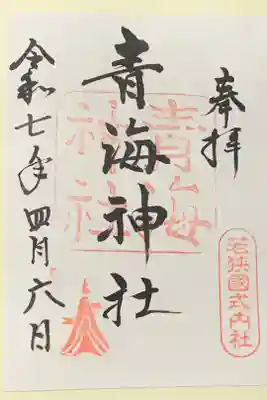 奉拝
若狭國式内社
青海神社
青海神社
令和七年四月六日